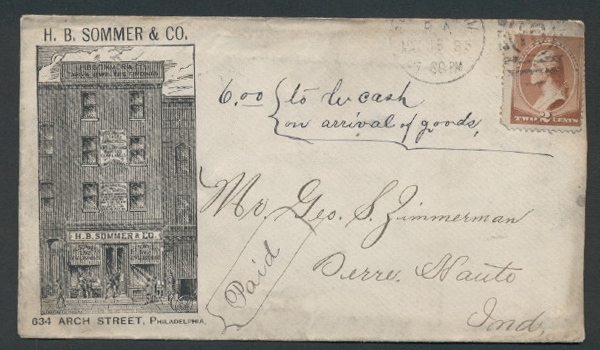 H. B. SOMMER & CO.
H. B. SOMMER & CO.
634 ARCH STREET, PHILADELPHIA.
7 PM
TWO CENTS
6.00 to be cash
on arrival of goods,
Mr. Geo. S. Zimmerman
Terre Hauto
Ind,
Paid